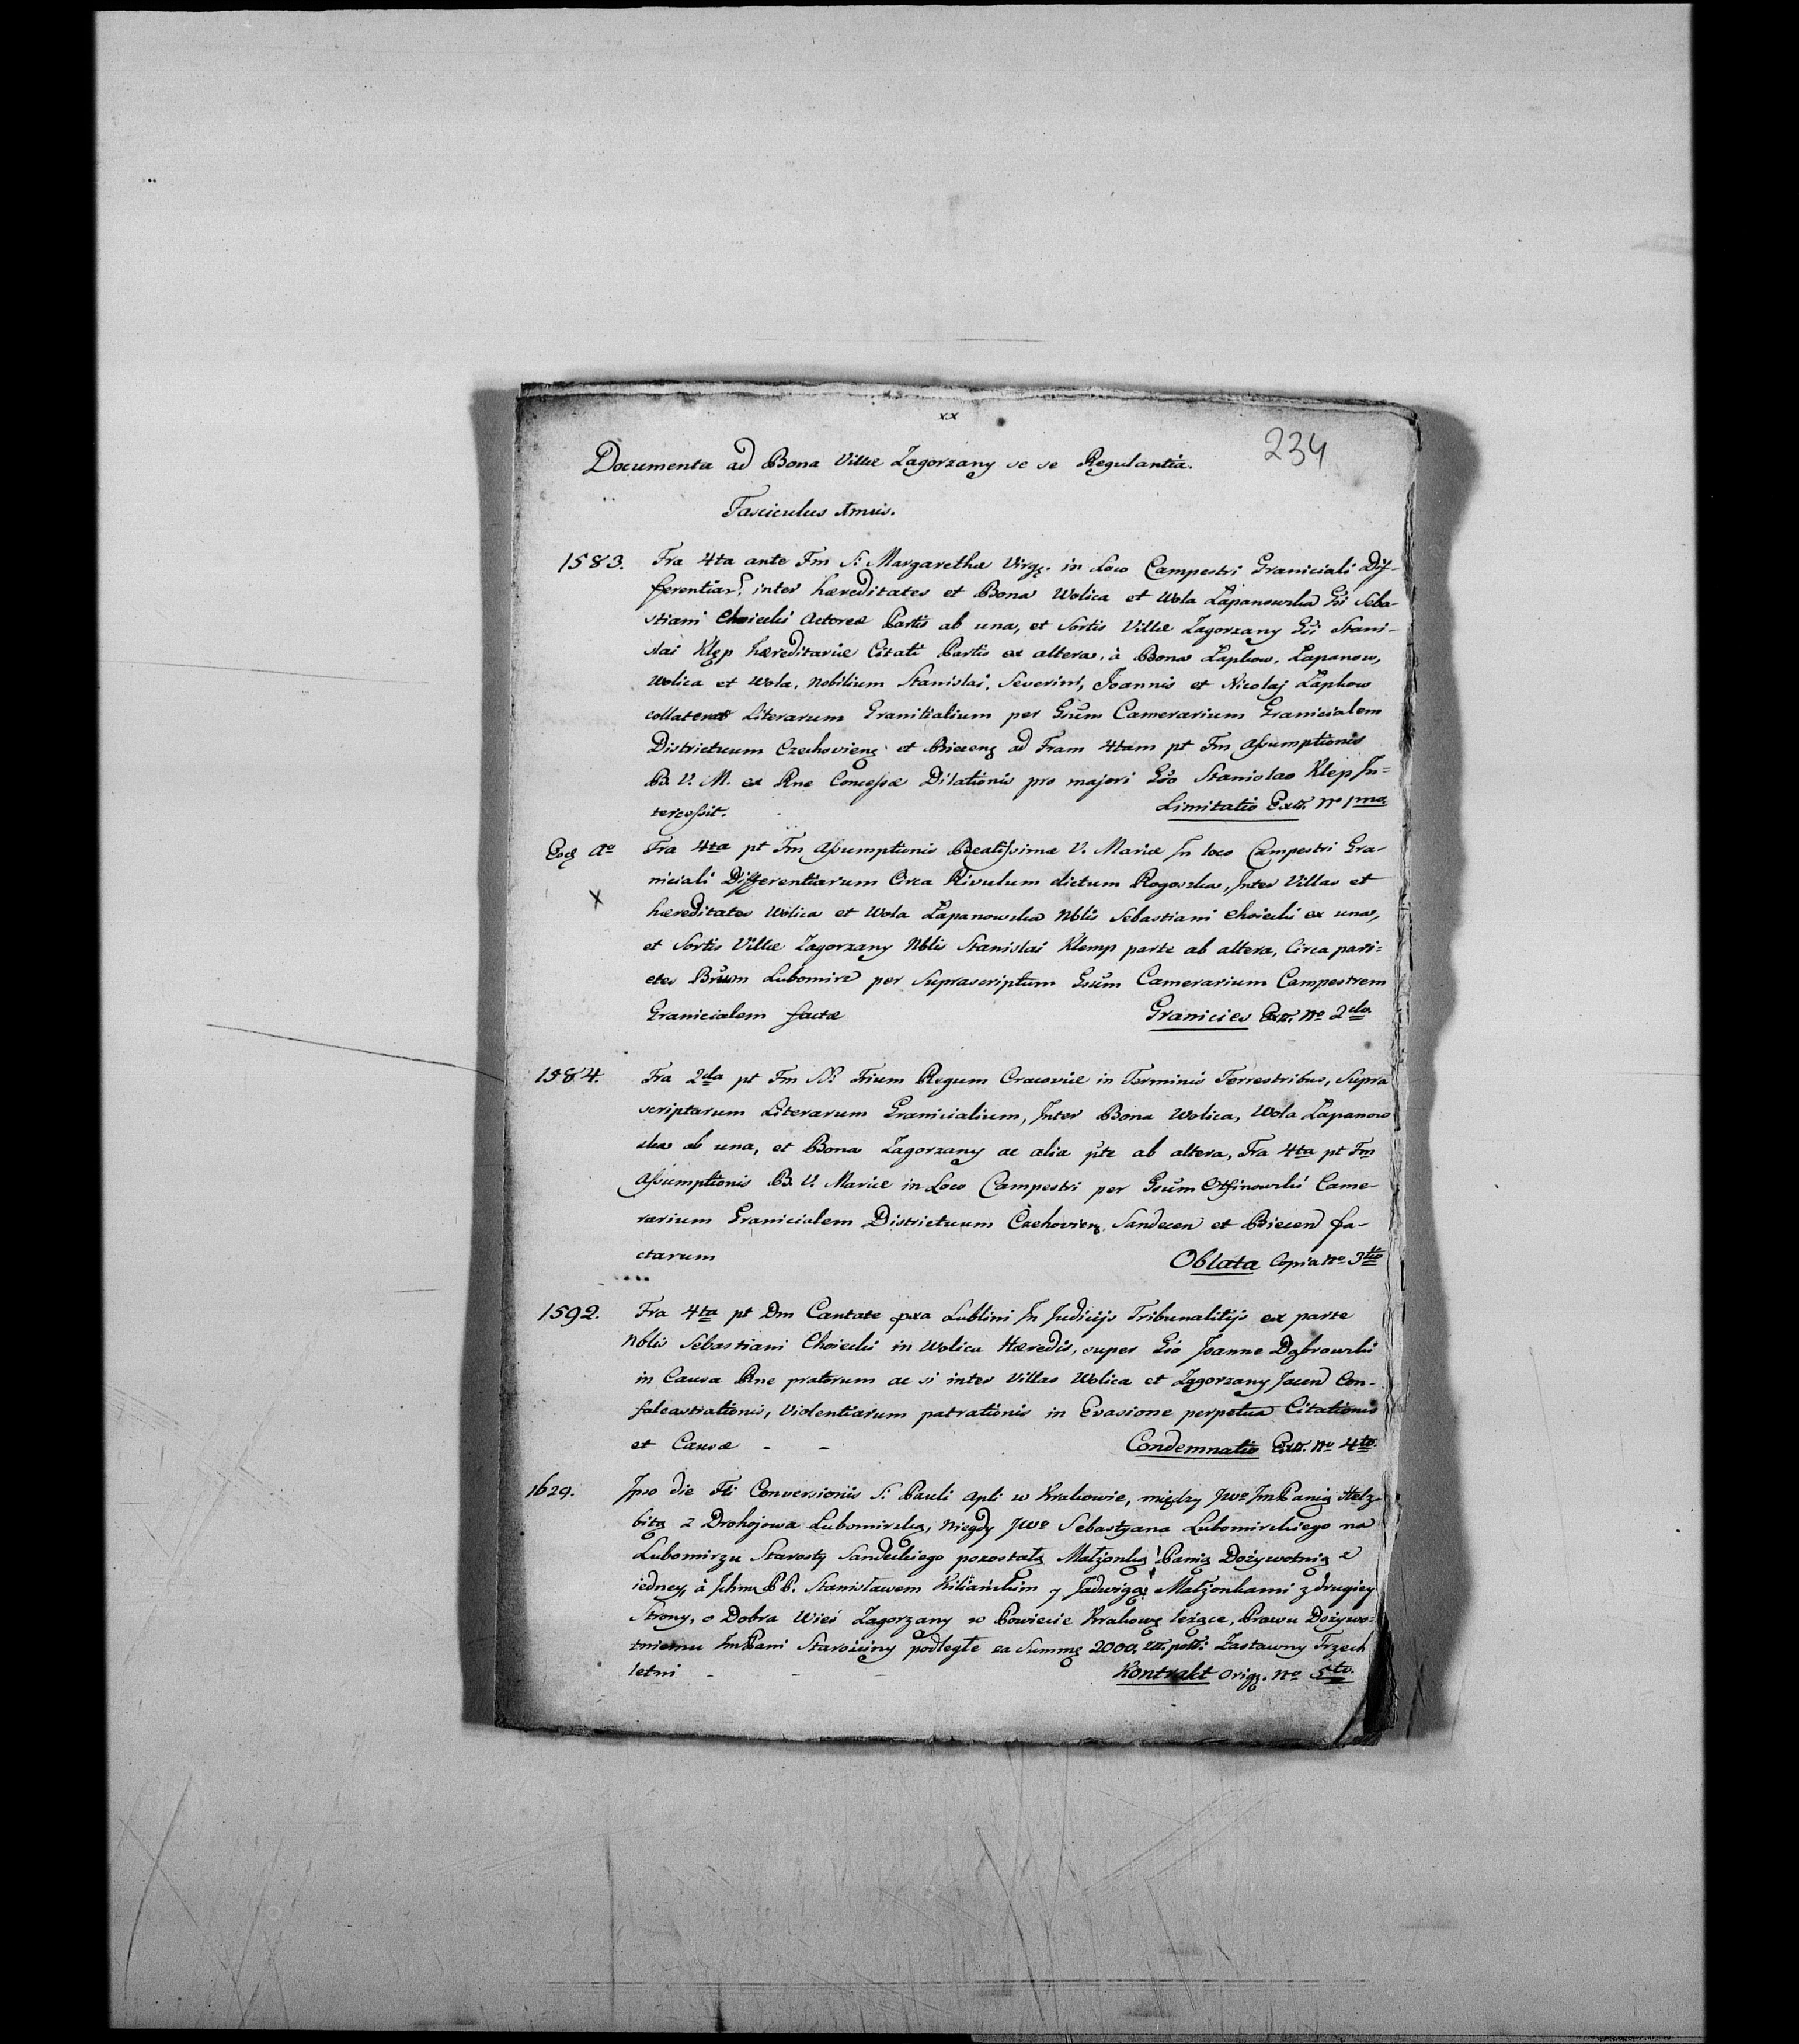 xx
234
Documenta ad Bona Villæ Zagorzany se se Regulantia.
Fasciculus 1mus.
1583. Fra 4ta ante Fm S: Margarethæ Virg. in Loco Campestri Graniciali Dif-
ferentiar: inter hæreditates et Bona Wolica et Wola Łapanowska Gsi Seba-
stiani Choiecki Actoreæ Partis ab una, et Sortis Villæ Zagorzany Gsi Stani-
slai Klęp hæreditariæ Citati Partis ex altera, à Bona Łapkow, Łapanow,
Wolica et Wola, Nobilium Stanislai, Severini, Joannis et Nicolaj Łapkow
collateral Literarum Granitialium per Gsum Camerarium Granicialem
Districtuum Czechovieng et Bieceng ad Fram 4tam pt Fm Assumptionis
B. V. M. ex Rne Concessæ Dilationis pro majori Gso Stanislao Klep In=
tercessit. Limitatio Extr. No 1mo
Eodg Ao Fra 4ta pt Fm Assumptionis Beatissimæ V. Mariæ In loco Campestri Gra-
X niciali Differentiarum Circa Rivulum dictum Rogoszka, Inter Villas et
hæreditates Wolica et Wola Łapanowska Nblis Sebastiani Choiecki ex una,
et Sortis Villæ Zagorzany Nblis Stanislai Klemp parte ab altera, Circa pari=
etes Brum Lubomirz per Suprascriptum Gsum Camerarium Campestrem
Granicialem factæ Granicies Extr. No 2do.
1584. Fra 2da pt Fm SS: Trium Regum Cracoviæ in Terminis Terrestribus, Supra
scriptarum Literarum Granicialium, Inter Bona Wolica, Wola Łapanow
ska ab una, et Bona Zagorzany ac alia pte ab altera, Fra 4ta pt Fm
Assumptionis B. V. Mariæ in Loco Campestri per Gsum Otfinowski Came-
rarium Granicialem Districtuum Czchovieng Sandecen et Biecen fa-
ctarum Oblata Copia No 3tio
1592. Fra 4ta pt Dm Cantate pxa Lublini In Judicijs Tribunalitijs ex parte
Nblis Sebastiani Choiecki in Wolica Hæredis, super Gso Joanne Dąbrowski
in Causa Rne pratorum ac si inter Villas Wolica et Zagorzany Jacen Con-
falcastrationis, Violentiarum patrationis in Evasione perpetua Citationis
et Causæ - - Condemnatio Extr. No 4to.
1629. Ipso die Fti Conversionis S: Pauli Apli w Krakowie, między JWo ImPanią Helż-
bitą z Drohojowa Lubomirską, Niegdy JWo Sebastyana Lubomirskiego na
Lubomirzu Starosty Sandeckiego pozostałą Małżonką Panią Dożywotnią z
iedney, à Ichm PP. Stanisławem Kiliańskim y Jadwigą Małżonkami z drugiey
Strony, o Dobra Wieś Zagorzany w Powiecie Krakowg leżące, Prawu Dożywo-
tniemu ImPani Starościny podległe za Summę 2000. zł. polł: Zastawny Trzech
letni - - - Kontrakt Orig. No 5to.